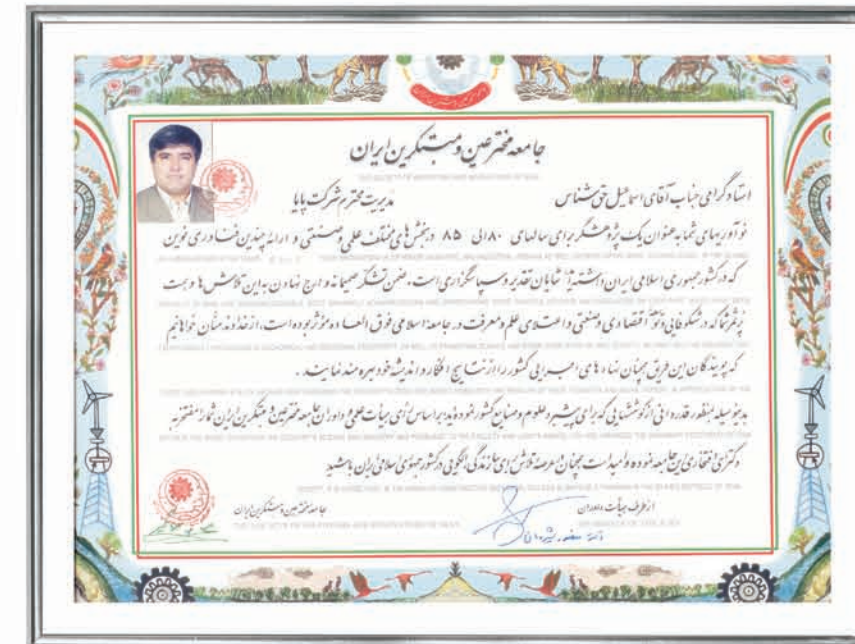 جامعه مخترعین و مبتکرین ایران
استاد گرامی جناب آقای اسماعیل حق شناس
مدیریت محترم شرکت پایا
نوآوریهای شما به عنوان یک پژوهشگر برای سالهای ۸۰ الی ۸۵ در بخش های مختلف علمی و صنعتی و ارائه چندین فناوری نوین
که در کشور جمهوری اسلامی ایران داشته اید شایان تقدیر و سپاسگزاری است، ضمن تشکر صمیمانه و ارج نهادن به این تلاش ها و همت
پرثمر شما که در شکوفایی و نمو اقتصادی و صنعتی و اعتلای علم و معرفت در جامعه اسلامی فوق العاده مؤثر بوده است، از خداوند منان خواهانیم
که پویندگان این طریق همچنان نهادهای اجرایی کشور را از نتایج افکار و اندیشه خود بهره مند نمایند .
بدینوسیله بمنظور قدردانی از کوششهایی که برای پیشبرد علوم و صنایع کشور نموده اید بر اساس رأی هیأت علمی و داوران جامعه مخترعین و مبتکرین ایران شما را مفتخر به
دکترای افتخاری این جامعه نموده و امید است همچنان در عرصه تلاش برای سازندگی الگویی در کشور جمهوری اسلامی ایران باشید
از طرف هیأت داوران
جامعه مخترعین و مبتکرین ایران